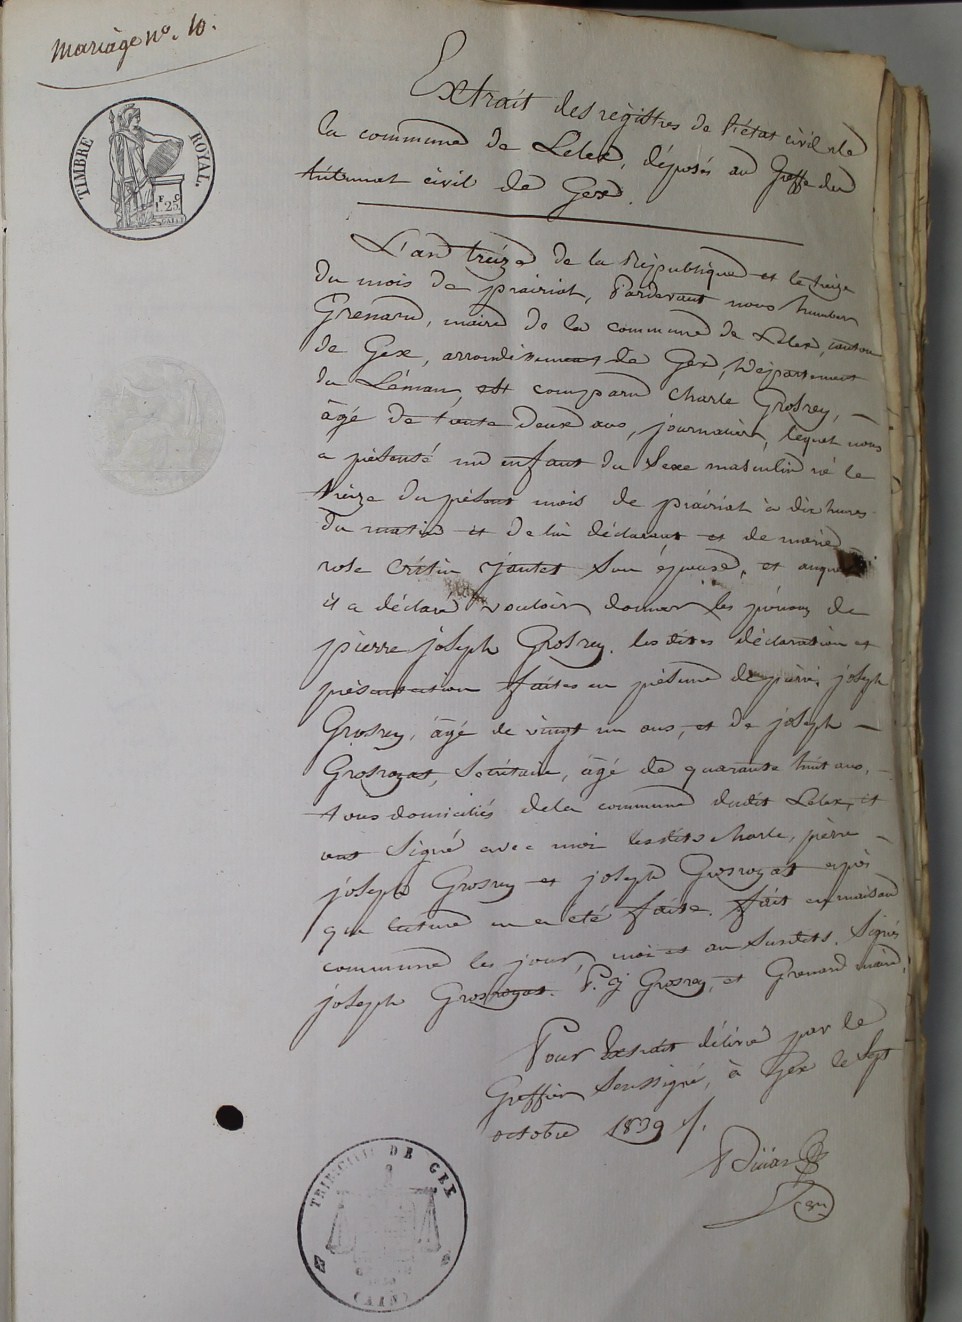 Mariage n°. 10.
TIMBRE ROYAL.
F. C.
1. 25.
Extrait des registres de l'état civil de
la commune de Lelex, déposés au Greffe du
tribunal civil de Gex.
L'an treize de la République et le treize
du mois de prairial, Pardevant nous humbert
Grenard, maire de la commune de Lelex, canton
de Gex, arrondissement de Gex, Département
du Léman, est comparu Charle Grosrey, —
âgé de trente deux ans, journalier, lequel nous
a présenté un enfant du Sexe masculin né le
treize du présent mois de prairial à dix heures
du matin et de lui déclarant et de marie
rose Cristin jantet Son épouse, et auquel
il a déclaré vouloir donner les prénoms de
pierre joseph Grosrey. les dites déclaration et
présentation faites en présence de pierre joseph
Grosrey, âgé de vingt un ans, et de joseph —
Grosroyat, Secrétaire, âgé de quarante huit ans, —
tous domiciliés de la commune dudit Lelex, et
ont Signé avec moi lesdits charle, pierre —
joseph Grosrey et joseph Grosroyat après
que lecture en a été faite. fait en maison
commune les jour, mois et an Susdits. Signés
joseph Grosroyat. P. j Grosrey, et Grenard maire.
Pour Extrait délivré par le
Greffier Soussigné, à Gex le Sept
octobre 1839 /.
TRIBUNAL DE GEX
(AIN)